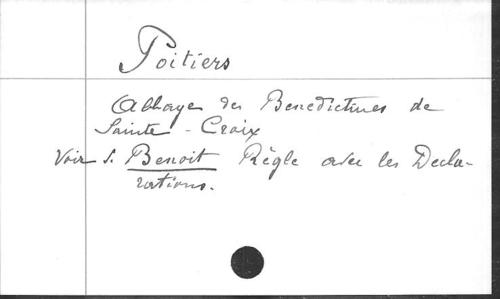 Poitiers
Abbaye des Benedictines de
Sainte-Croix
Voir S. Benoit Règle avec les Decla-
rations.